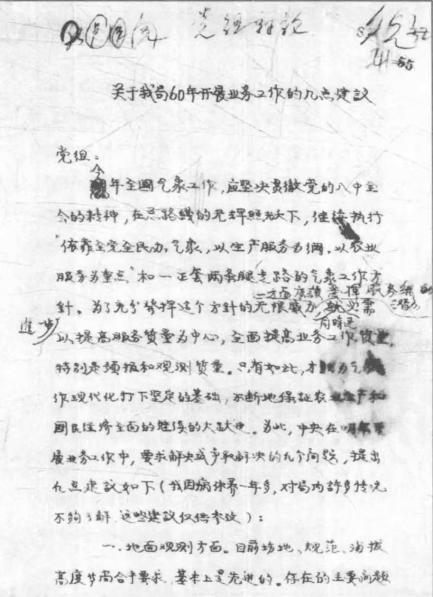 党组讨论
关于我局60年开展业务工作的几点建议
党组：
今年全国气象工作，应坚决贯彻党的八中全
会的精神，在总路线的光辉照耀下，继续执行
"依靠全党全民办气象，以生产服务为纲，以农业
服务为重点"和一正套两条腿走路的气象工作方
针。为了充分发挥这个方针的无限威力，
进一步
以提高服务质量为中心，全面提高业务工作质量，
特别是预报和观测质量。只有如此，才为气象
作现代化打下坚定的基础，不断地保证农业生产和
国民经济全面的继续的大跃进。为此，中央在
展业务工作中，要求解决或争取解决的九个问题，提出
九点建议如下（我因病休养一年多，对局内许多情况
不够了解，这些建议仅供参考）：
一、地面观测方面。目前场地、规范、海拔
高度步局合乎要求，基本上是先进的。存在的主要问题